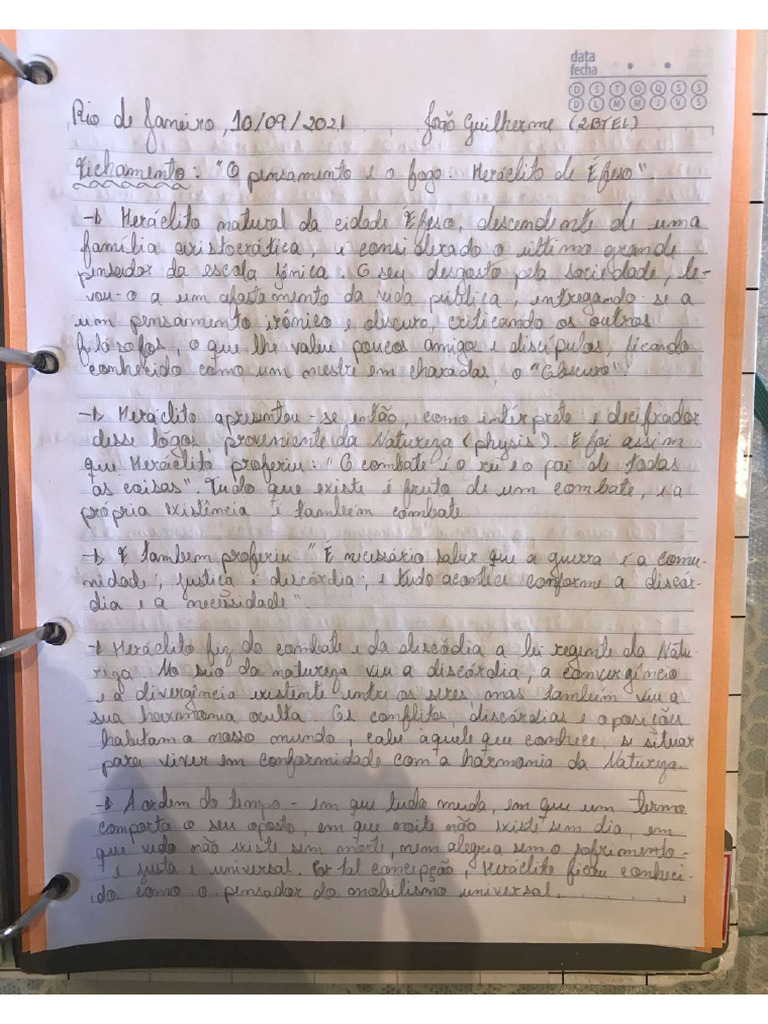 data
fecha
D S T Q Q S S
D L M M J V S
Rio de Janeiro, 10/09/2021 João Guilherme (2BTEL)
Fichamento: "O pensamento e o fogo. Heráclito de Éfeso".
→ Heráclito natural da cidade Éfeso, descendente de uma
família aristocrática, é considerado o último grande
pensador da escola Jônica. O seu desgosto pela sociedade, le-
vou-o a um afastamento da vida pública, entregando-se a
um pensamento irônico e obscuro, criticando os outros
filósofos, o que lhe valeu poucos amigos e discípulos, ficando
conhecido como um mestre em charadas, o "Obscuro".
→ Heráclito apresentou-se então, como intérprete e decifrador
desse lógos proveniente da Natureza (physis). E foi assim
que Heráclito proferiu: "O combate é o rei e o pai de todas
as coisas". Tudo que existe é fruto de um combate, e a
própria existência é também combate.
→ E também proferiu "É necessário saber que a guerra é a comu-
nidade; justiça é discórdia; e tudo acontece conforme a discór-
dia e a necessidade".
→ Heráclito fez do combate e da discódia a lei regente da Natu-
reza. No seio da natureza viu a discórdia, a convergência
e a divergência existente entre os seres, mas também viu a
sua harmonia oculta. Os conflitos, discórdias e oposições
habitam a nosso mundo, cabe àquele que conhece, se situar
para viver em conformidade com a harmonia da Natureza.
→ A ordem do tempo - em que tudo muda, em que um termo
comporta o seu oposto, em que noite não existe sem dia, em
que vida não existe sem morte, nem alegria sem o sofrimento -
é justa e universal. Por tal concepção, Heráclito ficou conheci-
do como o pensador do mobilismo universal.